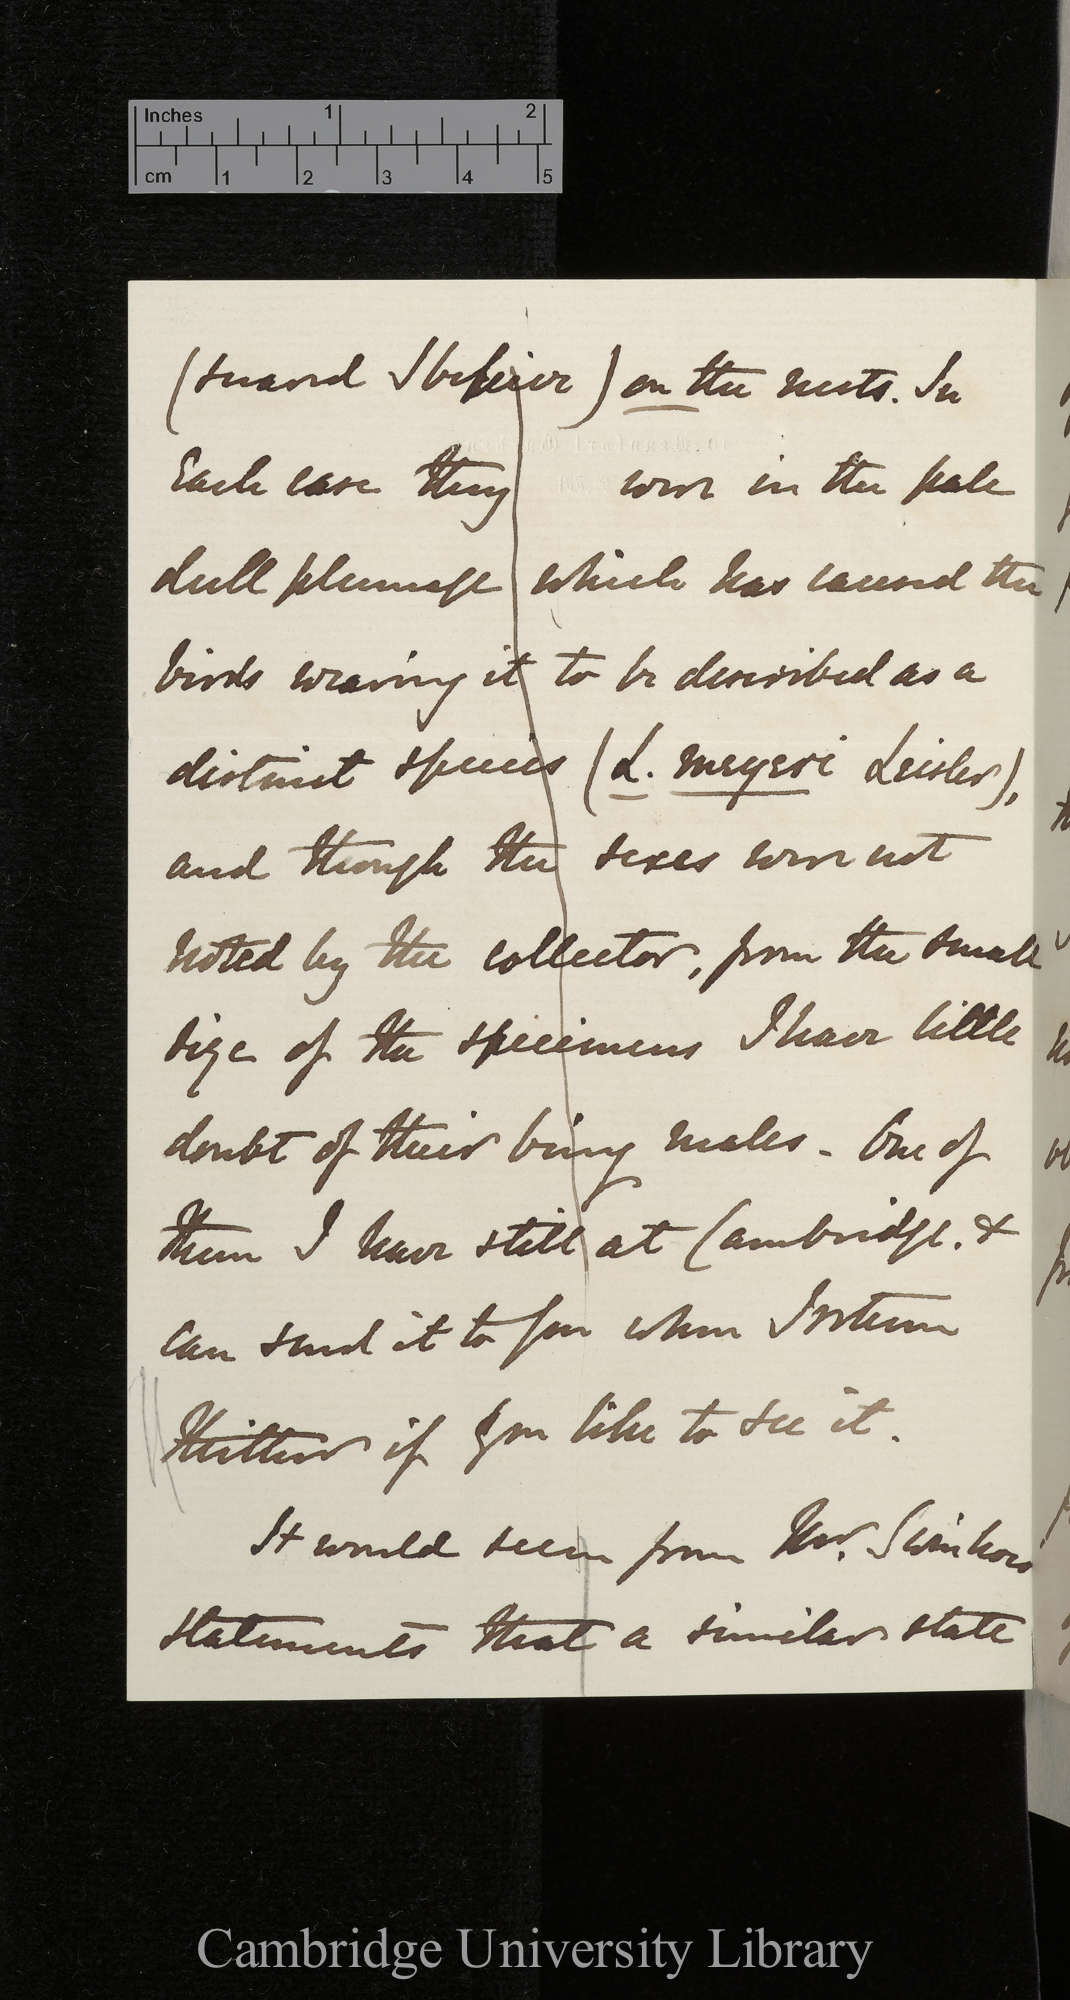 Inches 1 2
cm 1 2 3 4 5
(snared I believe) on the nests. In
Each case they were in the pale
dull plumage which has caused the
birds wearing it to be described as a
distinct species (L. meyeri Leisler),
and though the sexes were not
noted by the collector, from the small
size of the specimens I have little
doubt of their being males - One of
them I have still at Cambridge. &
can send it to you when I return
thither if you like to see it.
It would seem from Mr. Swinhoes
statements that a similar state
Cambridge University Library